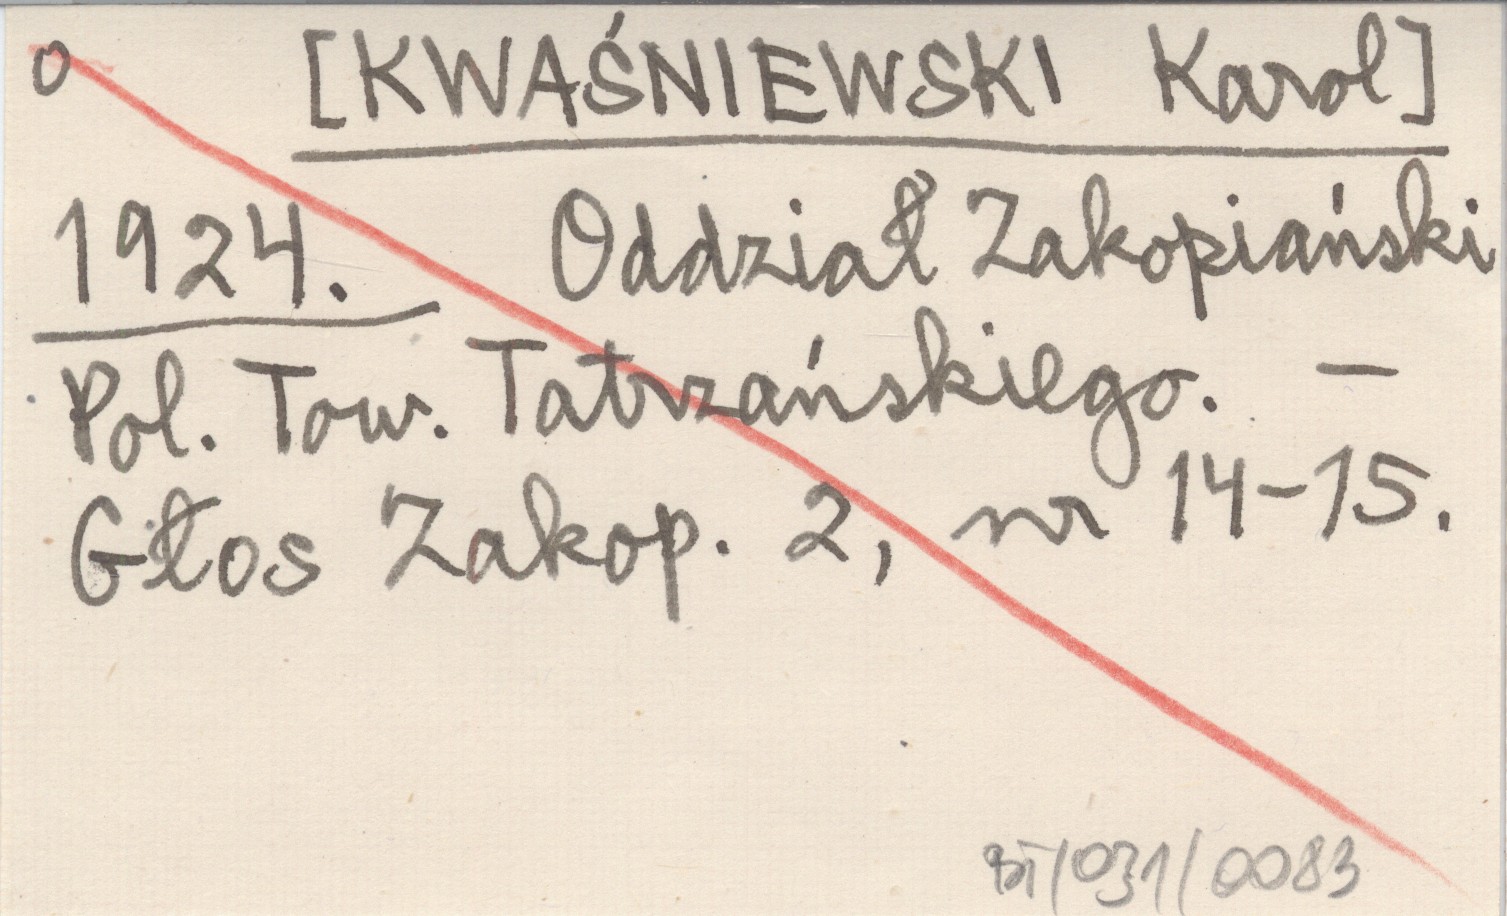 o [KWAŚNIEWSKI Karol]
1924. Oddział Zakopiański
Pol. Tow. Tatrzańskiego. —
Głos Zakop. 2, nr 14-15.
/031/0083